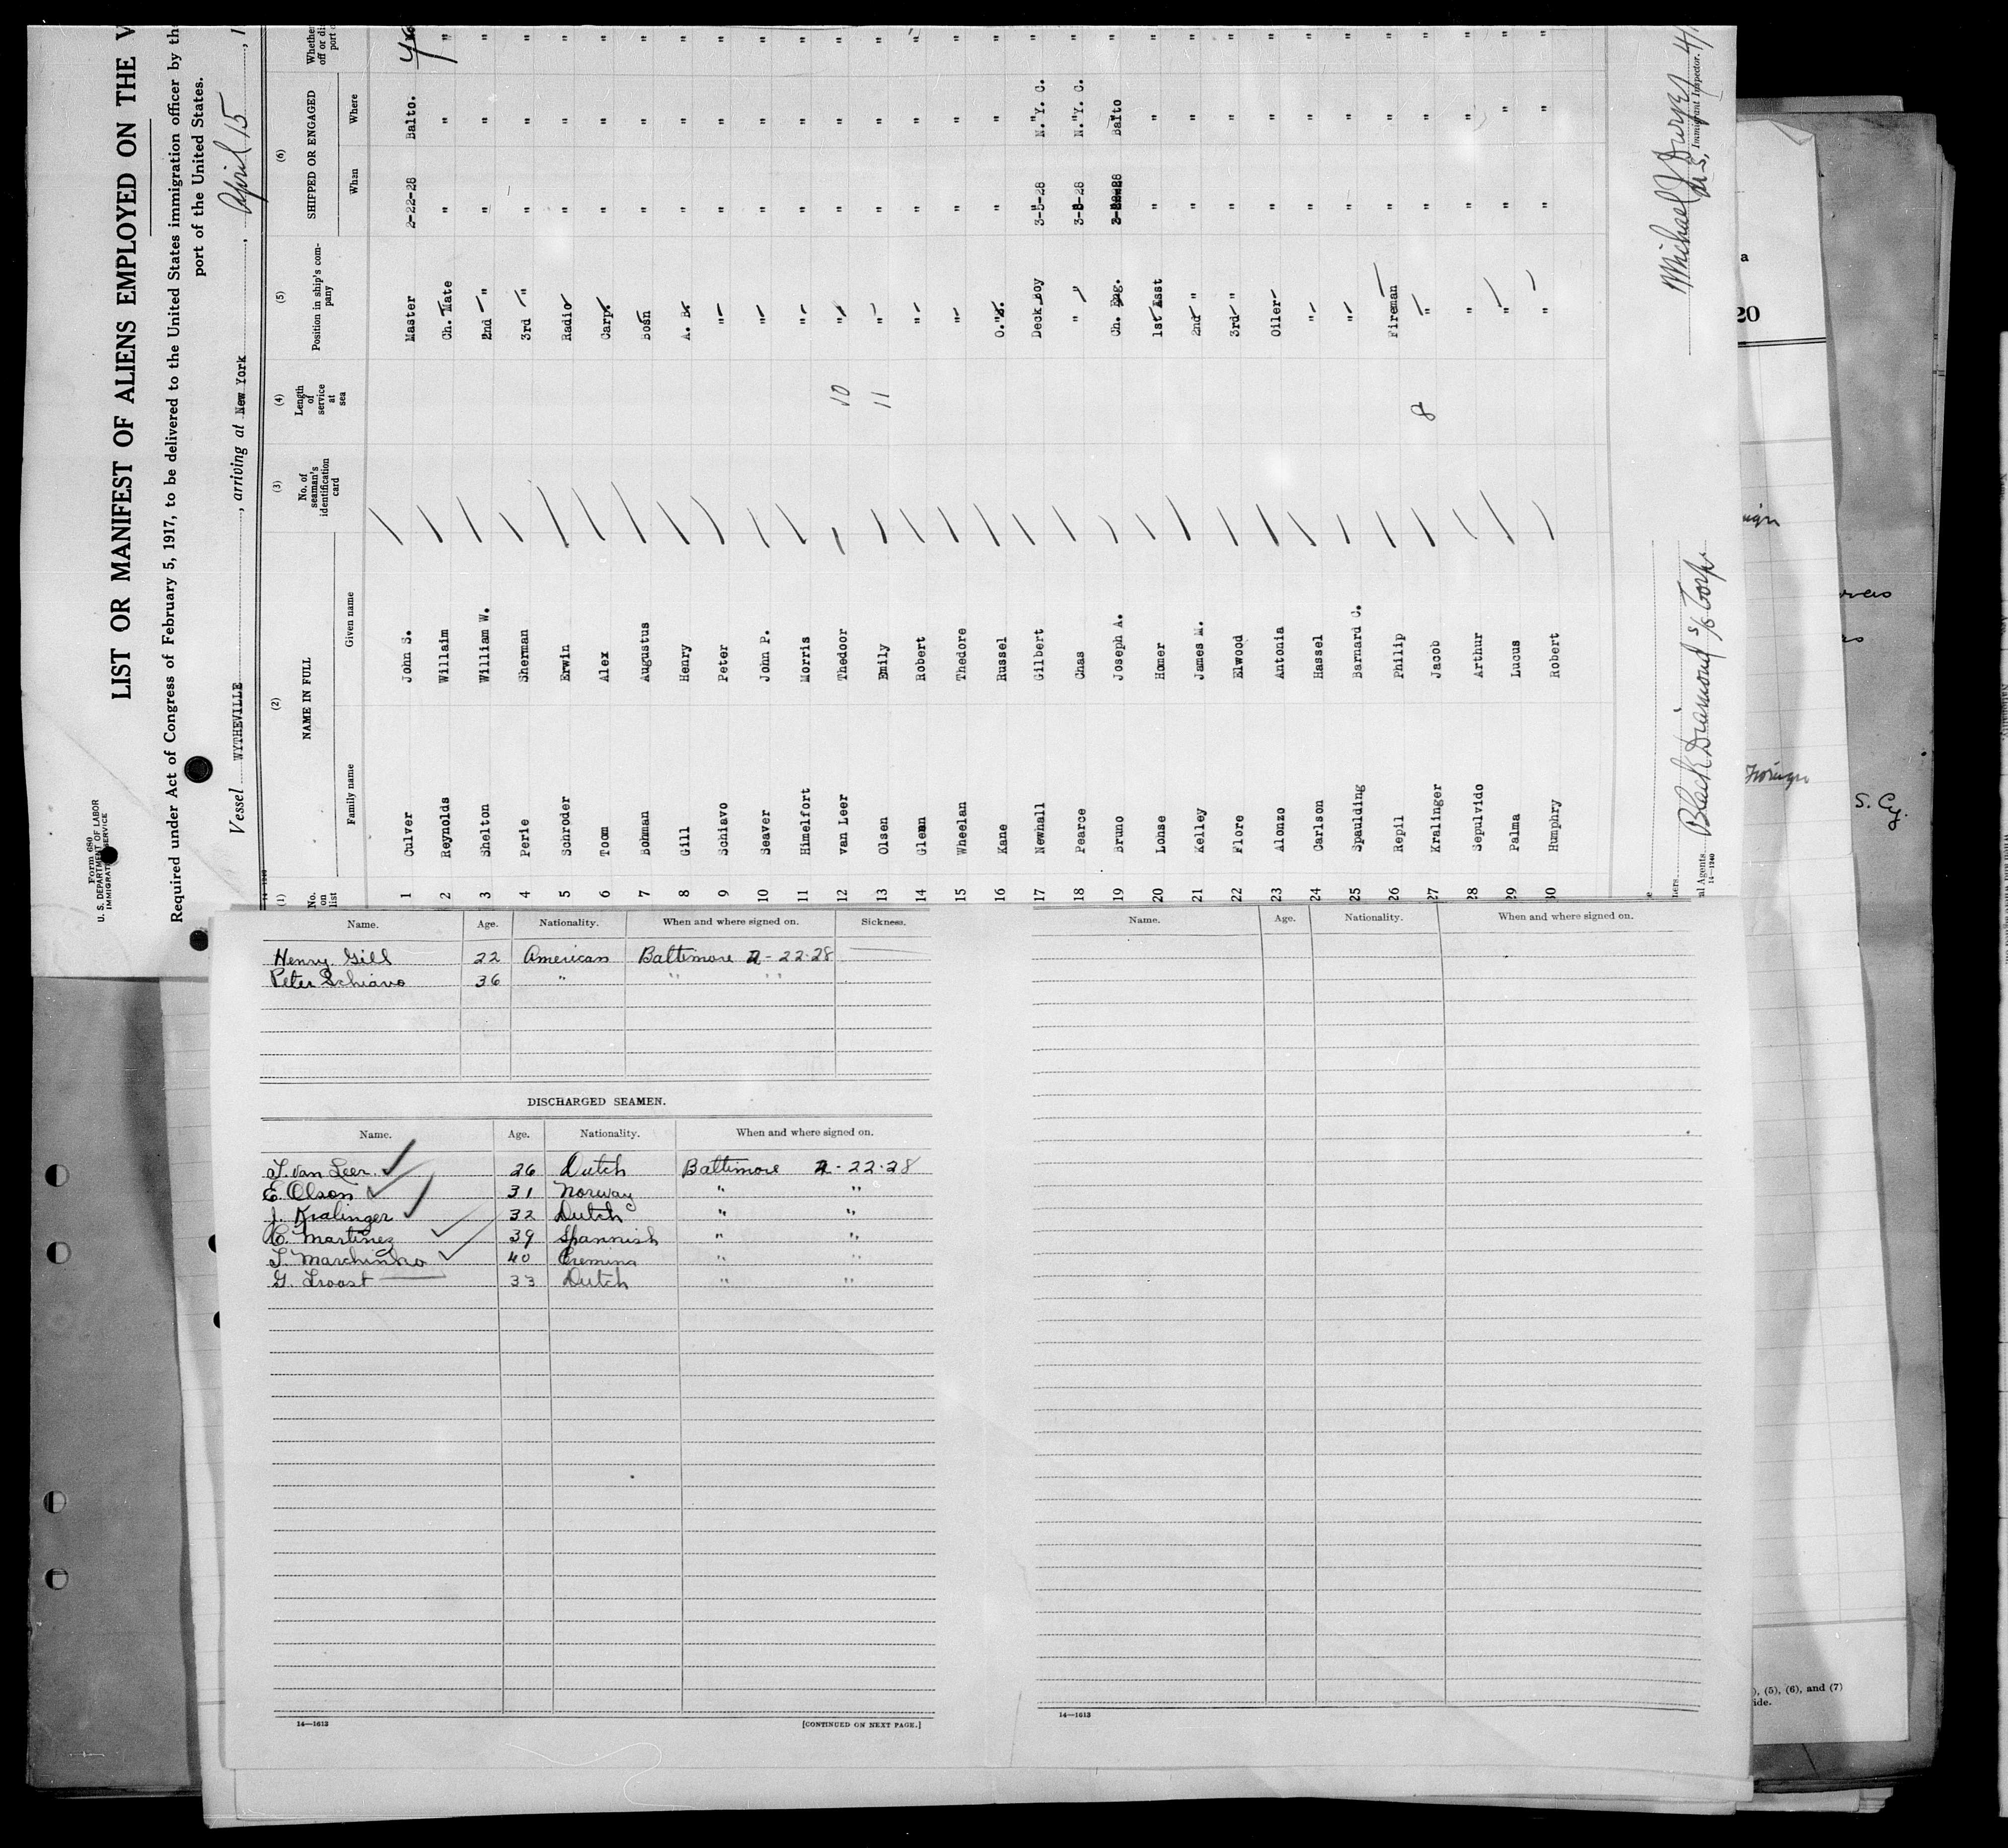 Form 680
U. S. DEPARTMENT OF LABOR
IMMIGRATION SERVICE
LIST OR MANIFEST OF ALIENS EMPLOYED ON THE V
Required under Act of Congress of February 5, 1917, to be delivered to the United States immigration officer by the
port of the United States.
Vessel WYTHEVILLE, arriving at New York, April 15, 1
(1) (2) (3) (4) (5) (6)
No. on list NAME IN FULL No. of seaman's identification card Length of service at sea Position in ship's company SHIPPED OR ENGAGED
Family name Given name When Where
1 Culver John S. Master 2-22-28 Balto.
2 Reynolds Willaim Ch. Mate " " "
3 Shelton William W. 2nd " " " "
4 Perie Sherman 3rd " " " "
5 Schroder Erwin Radio " " "
6 Tom Alex Carp. " " "
7 Bohman Augustus Bosn " " "
8 Gill Henry A. B. " " "
9 Schiavo Peter " " " "
10 Seaver John P. " " " "
11 Himelfort Morris " " " "
12 van Leer Thedoor 10 " " " "
13 Olsen Emily 11 " " " "
14 Glenn Robert " " " "
15 Wheelan Thedore " " " "
16 Kane Russel O."S. " " "
17 Newhall Gilbert Deck Boy 3-5-28 N. Y. C. "
18 Pearce Chas " " 3-8-28 N. Y. C. "
19 Bruno Joseph A. Ch. Eng. Balto "
20 Lohse Homer 1st Asst " " "
21 Kelley James M. 2nd " " " "
22 Flore Elwood 3rd " " " "
23 Alonzo Antonia Oiler " " "
24 Carlson Hassel " " " "
25 Spaulding Barnard C. " " " "
26 Repil Philip Fireman " " "
27 Kralinger Jacob 8 " " " "
28 Sepulvido Arthur " " " "
29 Palma Lucus " " " "
30 Humphry Robert " " " "
Black Diamond S/S Corp
14-1240
Michael J
U.S. Immigrant Inspector.
Name. Age. Nationality. When and where signed on. Sickness.
Henry Gill 22 American Baltimore 2-22-28
Peter Schiavo 36 " " "
DISCHARGED SEAMEN.
Name. Age. Nationality. When and where signed on.
T. van Leer. 26 Dutch Baltimore 2-22-28
E. Olson 31 Norway " "
J. Kralinger 32 Dutch " "
C. Martinez 39 Spannish " "
T. Marchinko 40 " "
G. Troost 33 Dutch " "
14—1613 [CONTINUED ON NEXT PAGE.]
Name. Age. Nationality. When and where signed on.
14—1613
a
20
S. Cy.
), (5), (6), and (7)
ide.